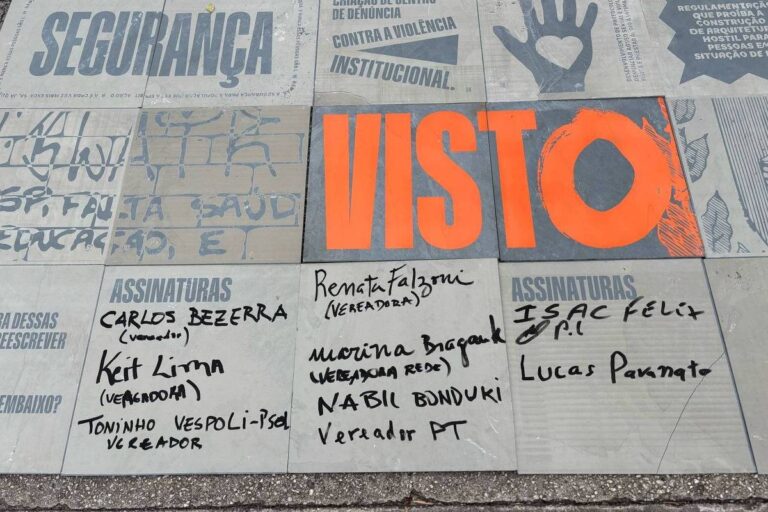 SEGURANÇA
CRIAÇÃO DE CENTRO
DE DENÚNCIA
CONTRA A VIOLÊNCIA
INSTITUCIONAL.
REGULAMENTAÇÃO
QUE PROÍBA A
CONSTRUÇÃO
DE ARQUITETURA
HOSTIL PARA
PESSOAS EM
SITUAÇÃO DE
SP, FALTA SAÚD
EDUCAÇÃO, E
VISTO
RA DESSAS
REESCREVER
EMBAIXO?
ASSINATURAS
CARLOS BEZERRA
(vereador)
Keit Lima
(VEREADORA)
TONINHO VESPOLI-PSOL
VEREADOR
Renata Falzoni
(VEREADORA)
Marina Bragante
(VEREADORA REDE)
NABIL BONDUKI
Vereador PT
ASSINATURAS
ISAC FÉLIX
P.L
Lucas Pavanato